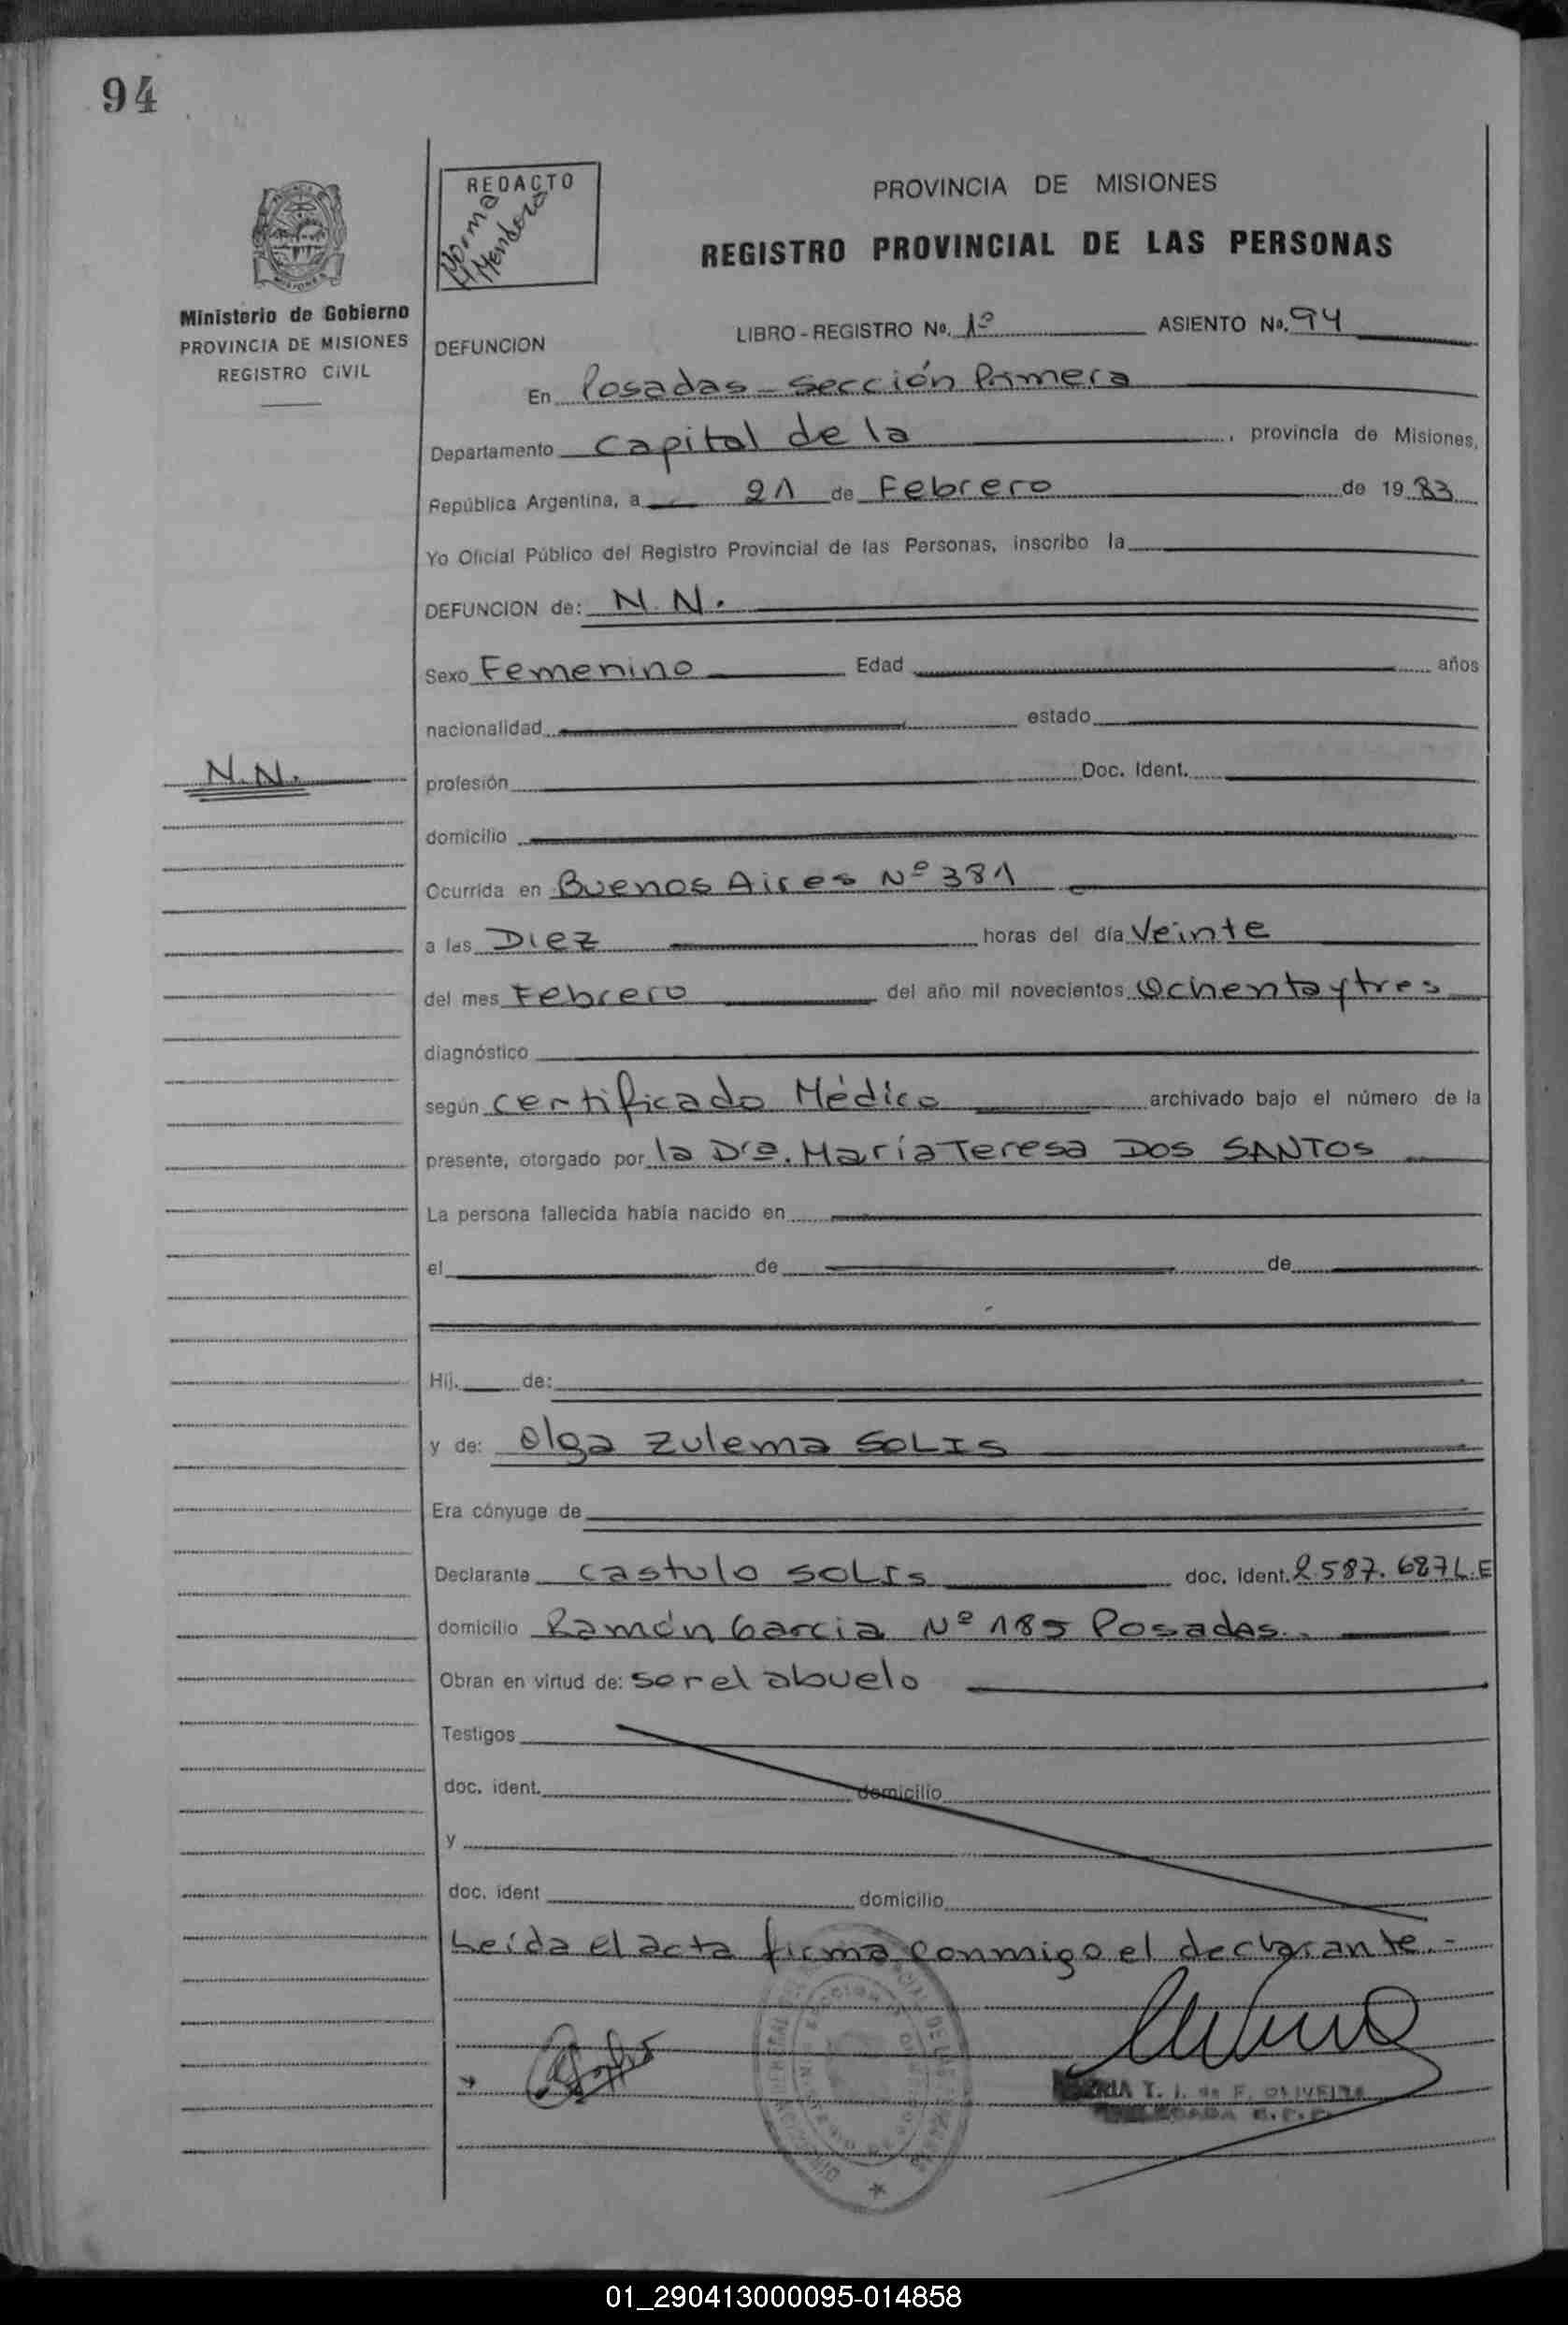 94
REDACTO
Norma
Mendoza
PROVINCIA DE MISIONES
REGISTRO PROVINCIAL DE LAS PERSONAS
Ministerio de Gobierno
PROVINCIA DE MISIONES
REGISTRO CIVIL
LIBRO - REGISTRO No. 1º ASIENTO No. 94
DEFUNCION
En Posadas - Sección Primera
Departamento Capital de la , provincia de Misiones,
República Argentina, a 21 de Febrero de 1983
Yo Oficial Público del Registro Provincial de las Personas, inscribo la
DEFUNCION de: N.N.
Sexo Femenino Edad años
nacionalidad estado
N.N.
profesión Doc. Ident.
domicilio
Ocurrida en Buenos Aires Nº 381
a las Diez horas del día Veinte
del mes Febrero del año mil novecientos Ochenta y tres
diagnóstico
según Certificado Médico archivado bajo el número de la
presente, otorgado por la Dra. María Teresa DOS SANTOS
La persona fallecida había nacido en
el de de
Hij. de:
y de: Olga Zulema SOLIS
Era cónyuge de
Declarante Castulo SOLIS doc. ident. 2.587.687 L.E
domicilio Ramón Garcia Nº 185 Posadas.
Obran en virtud de: ser el abuelo
Testigos
doc. ident. domicilio
y
doc. ident domicilio
Leída el acta firma conmigo el declarante.-
MARIA T. J. de F. OLIVEIRA
DELEGADA
01_290413000095-014858